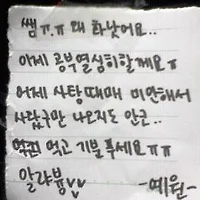 쌤ㅠ.ㅠ 왜 화낫어요..
이제 공부열심히할께요ㅠ
어제 사탕때매 미안해서
사탕구만 나오지도 안쿤..
먹고 기분푸세요ㅠㅠ
알라븅♡♡
-예원-